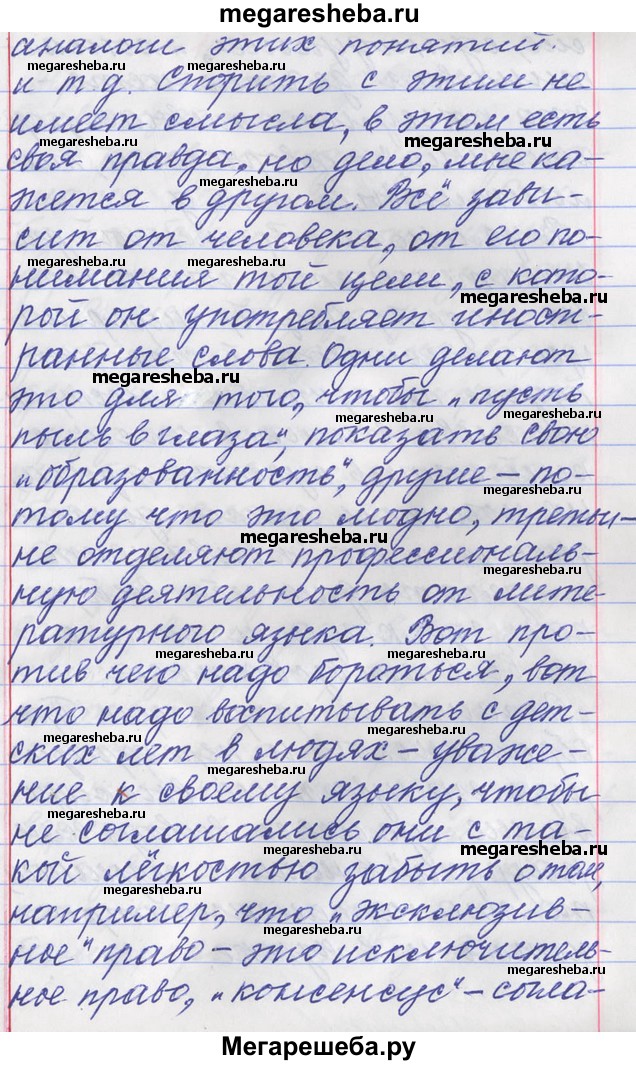 megaresheba.ru
аналоги этих понятий.
и т.д. Спорить с этим не
имеет смысла, в этом есть
своя правда, но дело, мне ка-
жется в другом. Всё зави-
сит от человека, от его по-
нимания той цели, с кото-
рой он употребляет иност-
ранные слова. Одни делают
это для того, чтобы „пусть
пыль в глаза“, показать свою
„образованность“, другие – по-
тому что это модно, третьи –
не отделяют профессиональ-
ную деятельность от лите-
ратурного языка. Вот про-
тив чего надо бороться, вот
что надо воспитывать с дет-
ских лет в людях – уваже-
ние к своему языку, чтобы
не соглашались они с та-
кой лёгкостью забыть о том,
например, что „эксклюзив-
ное“ право – это исключитель-
ное право, „консенсус“ – согла-
Мегарешеба.ру